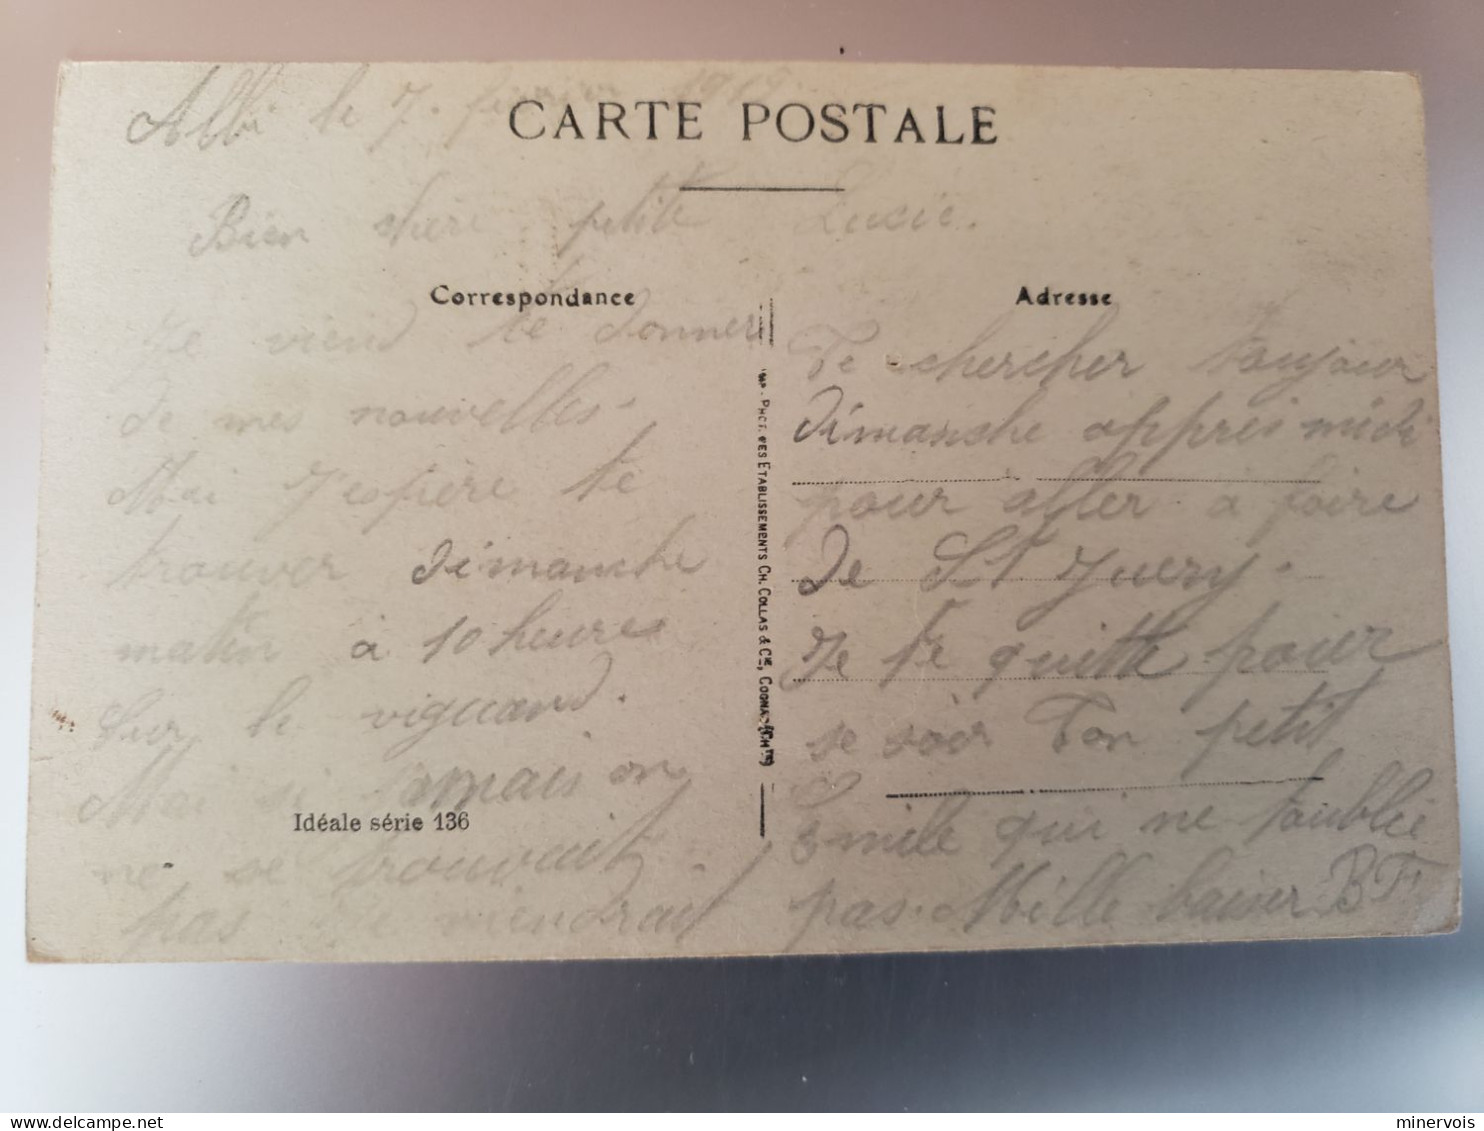 Albi le 7. février 1919.
CARTE POSTALE
Bien chère petite Lucie.
Correspondance
Je viend te donner
de mes nouvelles.
Mai J'espère te
trouver dimanche
matin à 10 heures
Sur le viguand.
Mai si jamais on
ne se trouvait
pas Je viendrait
Idéale série 136
IMP. PHOT. DES ETABLISSEMENTS CH. COLLAS & CIE, COGNAC (CHTE)
Adresse
Te chercher toujour
dimanche apprès midi
pour aller a foire
de St Juery.
Je te quitte pour
se voir Ton petit
Emile qui ne t'oublie
pas. Mille baiser BF
minervois